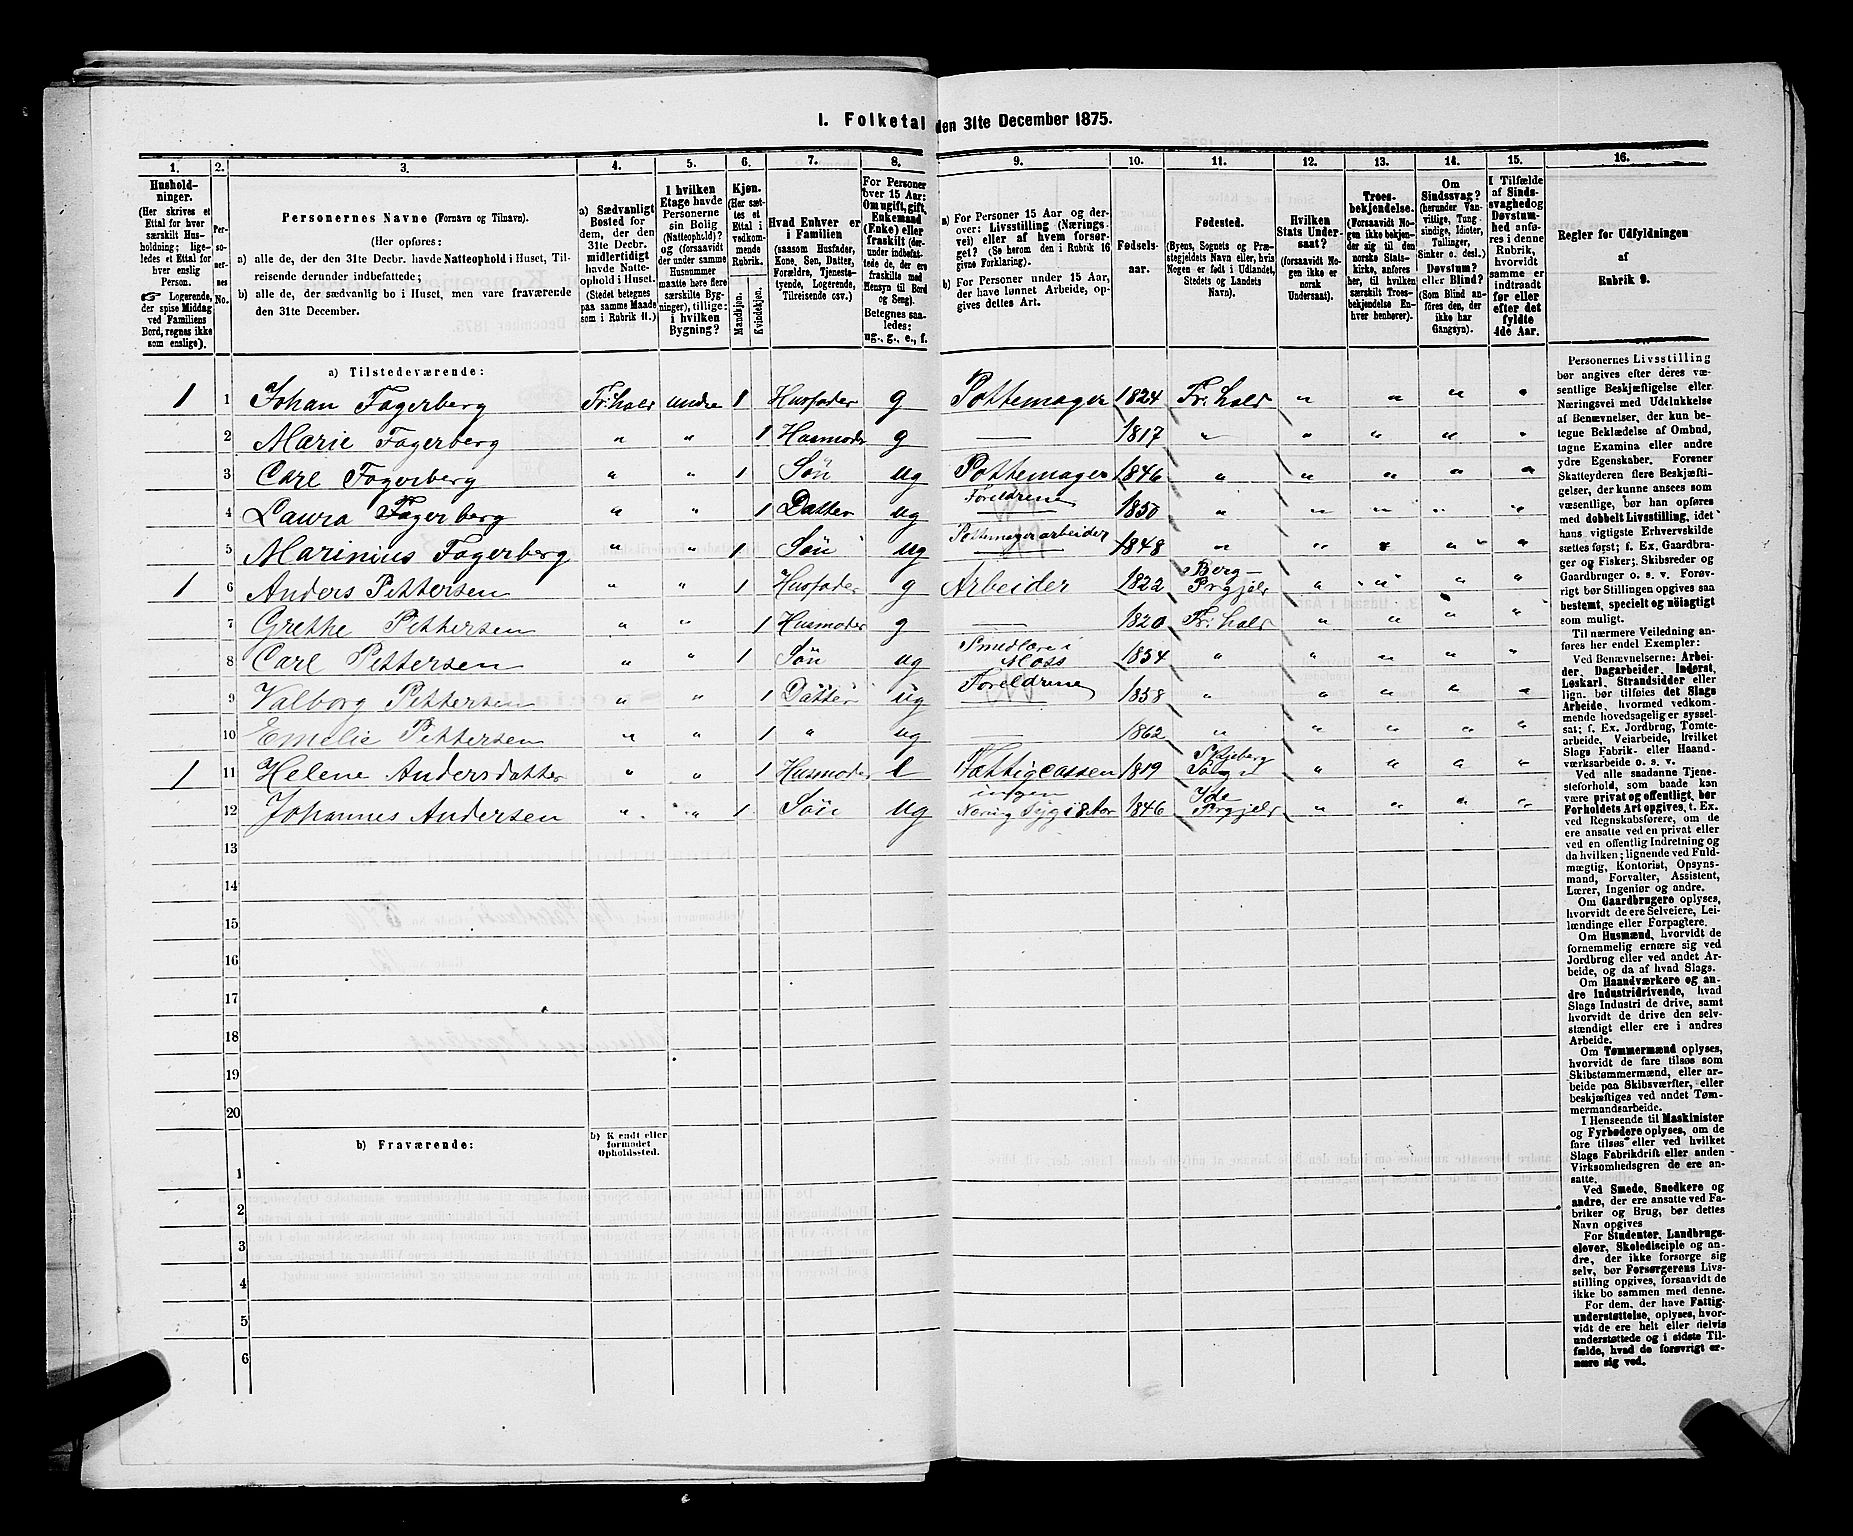 I. Folketal den 31te December 1875.
1. 2. 3. 4. 5. 6. 7. 8. 9. 10. 11. 12. 13. 14. 15. 16.
Hushold-
ninger.
(Her skrives et
Ettal for hver
særskilt Hus-
holdning; lige-
ledes et Ettal for
hver enslig
Person.
☞ Logerende,
der spise Middag
ved Familiens
Bord, regnes ikke
som enslige).
Per-
so-
ner-
nes
No.
Personernes Navne (Fornavn og Tilnavn).
(Her opføres:
a) alle de, der den 31te Decbr. havde Natteophold i Huset, Til-
reisende derunder indbefattede;
b) alle de, der sædvanlig bo i Huset, men vare fraværende
den 31te December.
a) Sædvanligt
Bosted for
dem, der den
31te Decbr.
midlertidigt
havde Natte-
ophold i Huset.
(Stedet betegnes
paa samme Maade
som i Rubrik 11.)
I hvilken
Etage havde
Personerne
sin Bolig
(Natteophold)?
og (forsaavidt
der under samme
Husnummer
maatte høre flere
særskilte Byg-
ninger), tillige:
i hvilken
Bygning?
Kjøn.
(Her sæt-
tes et
Ettal i
vedkom-
mende
Rubrik.
Mandskjøn.
Kvindekjøn.
Hvad Enhver er
i Familien
(saasom Husfader,
Kone, Søn, Datter,
Forældre, Tjeneste-
tyende, Logerende,
Tilreisende osv.)
For Personer
over 15 Aar:
Om ugift, gift,
Enkemand
(Enke) eller
fraskilt (der-
under indbefat-
tede de, der ere
fraskilte med
Hensyn til Bord
og Seng).
Betegnes saa-
ledes:
ug., g., e., f.
a) For Personer 15 Aar og der-
over: Livsstilling (Nærings-
vei) eller af hvem forsør-
get? (Se herom den i Rubrik 16
givne Forklaring).
b) For Personer under 15 Aar,
der have lønnet Arbeide, op-
gives dettes Art.
Fødsels-
aar.
Fødested.
(Byens, Sognets og Præ-
stegjeldets Navn eller, hvis
Nogen er født i Udlandet,
Stedets og Landets
Navn).
Hvilken
Stats Under-
saat?
(forsaavidt No-
gen ikke er
norsk
Undersaat).
Troes-
bekjendelse.
(Forsaavidt No-
gen ikke bekjen-
der sig til den
norske Stats-
kirke, anføres
her, til hvilken
særskilt Troes-
bekjendelse En-
hver henhører).
Om
Sindssvag?
(herunder Van-
vittige, Tung-
sindige, Idioter,
Tullinger,
Sinker o. desl.)
Døvstum?
eller Blind?
(Som Blind an-
føres den, der
ikke har
Gangsyn).
I Tilfælde
af Sinds-
svaghed og
Døvstum-
hed anfø-
res i denne
Rubrik,
hvorvidt
samme er
indtraadt
før eller
efter det
fyldte
4de Aar.
Regler for Udfyldningen
af
Rubrik 9.
a) Tilstedeværende:
1 1 Johan Fagerberg Fr:hald andre 1 Husfader g Pottemager 1824 Fr:hald " " " "
2 Marie Fagerberg " " 1 Husmoder g — 1817 " " " " "
3 Carl Fagerberg " " 1 Søn ug Pottemager 1846 " " " " "
4 Laura Fagerberg " " 1 Datter ug Foreldrene 1850 " " " " "
5 Marinius Fagerberg " " 1 Søn ug Pottemagerarbeider 1848 " " " " "
1 6 Anders Pettersen " " 1 Husfader g Arbeider 1822 Berg Prgjeld " " " "
7 Grethe Pettersen " " 1 Husmoder g — 1820 Fr:hald " " " "
8 Carl Pettersen " " 1 Søn ug Smedlære i Moss 1854 " " " " "
9 Valborg Pettersen " " 1 Datter ug Foreldrene 1858 " " " " "
10 Emelie Pettersen " " 1 " ug — 1862 " " " " "
1 11 Helene Andersdatter " " 1 Husmoder e Fattigcassen 1819 Skjeberg " " " "
12 Johannes Andersen " " 1 Søn ug ingen Næring Syg i 8 Aar 1846 Ide Prgjeld " " " "
13
14
15
16
17
18
19
20
b) Fraværende:
b) Kendt eller
formodet
Opholdssted.
1
2
3
4
5
6
Personernes Livsstilling
bør angives efter deres væ-
sentlige Beskjæftigelse eller
Næringsvei med Udelukkelse
af Benævnelser, der kun be-
tegne Beklædelse af Ombud,
tagne Examina eller andre
ydre Egenskaber. Forener
Skatteyderen flere Beskjæfti-
gelser, der kunne ansees som
væsentlige, bør han opføres
med dobbelt Livsstilling, idet
hans vigtigste Erhvervskilde
sættes først; f. Ex. Gaardbru-
ger og Fisker; Skibsreder og
Gaardbruger o. s. v. Forøv-
rigt bør Stillingen opgives saa
bestemt, specielt og nøiagtigt
som muligt.
Til nærmere Veiledning an-
føres her endel Exempler:
Ved Benævnelserne: Arbei-
der, Dagarbeider, Inderst,
Løskarl, Strandsidder eller
lign. bør tilføies det Slags
Arbeide, hvormed vedkom-
mende hovedsagelig er syssel-
sat; f. Ex. Jordbrug, Tomte-
arbeide, Veiarbeide, hvilket
Slags Fabrik- eller Haand-
værksarbeide o. s. v.
Ved alle saadanne Tjene-
steforhold, som baade kan
være privat og offentligt, bør
Forholdets Art opgives, t. Ex.
ved Regnskabsførere, om de
ere ansatte ved en privat eller
ved en offentlig Indretning og
da hvilken; lignende ved Fuld-
mægtig, Kontorist, Opsyns-
mand, Forvalter, Assistent,
Lærer, Ingeniør og andre.
Om Gaardbrugere oplyses,
hvorvidt de ere Selveiere, Lei-
lændinge eller Forpagtere.
Om Husmænd, hvorvidt de
fornemmelig ernære sig ved
Jordbrug eller ved andet Ar-
beide, og da af hvad Slags.
Om Haandværkere og an-
dre Industridrivende, hvad
Slags Industri de drive, samt
hvorvidt de drive den selv-
stændigt eller ere i andres
Arbeide.
Om Tømmermænd oplyses,
hvorvidt de fare tilsøs som
Skibstømmermænd, eller ar-
beide paa Skibsværfter, eller
beskjæftiges ved andet Tøm-
mermandsarbeide.
I Henseende til Maskinister
og Fyrbødere oplyses, om de
fare tilsøs eller ved hvilket
Slags Fabrikdrift eller anden
Virksomhedsgren de ere an-
satte.
Ved Smede, Snedkere og
andre, der ere ansatte ved Fa-
briker og Brug, bør dettes
Navn opgives
For Studenter, Landbrugs-
elever, Skoledisciple og an-
dre, der ikke forsørge sig
selv, bør Forsørgerens Livs-
stilling opgives, forsaavidt de
ikke bo sammen med denne.
For dem, der have Fattig-
understøttelse, oplyses, hvor-
vidt de ere helt eller delvis
understøttede og i sidste Til-
fælde, hvad de forøvrigt er-
nære sig ved.